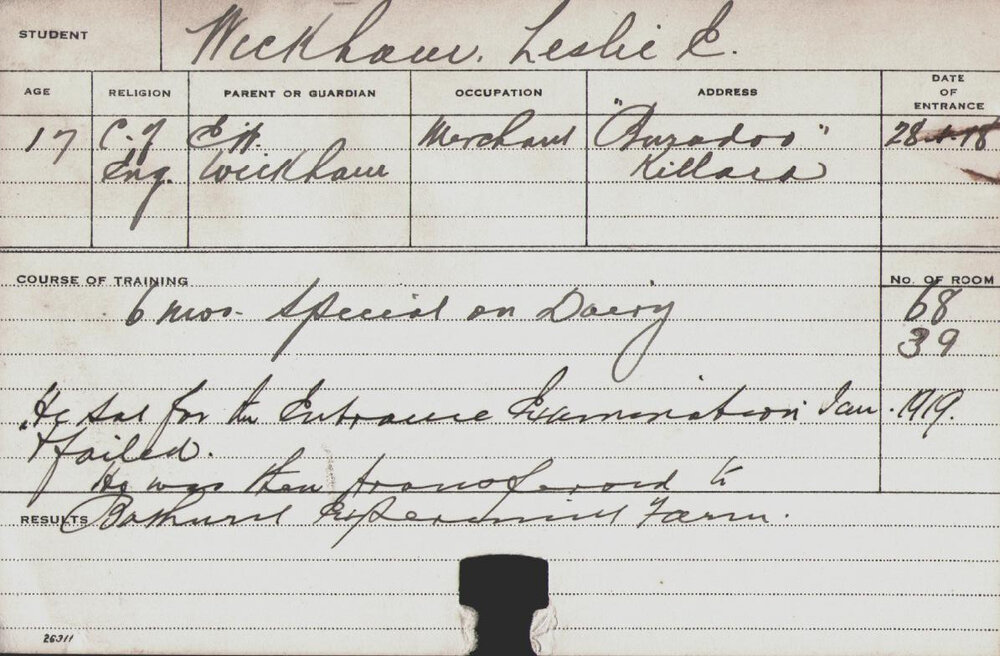 STUDENT Wickham, Leslie E.
AGE RELIGION PARENT OR GUARDIAN OCCUPATION ADDRESS DATE OF ENTRANCE
17 C. of E.H. Merchant " " 28-4-18
Eng. Wickham Killara
COURSE OF TRAINING No. OF ROOM
6 mos. Special on Dairy 68
39
He sat for the Entrance Examination Jan. 1919.
& failed.
He was then transferred to
RESULTS Bathurst Experiment Farm.
26311